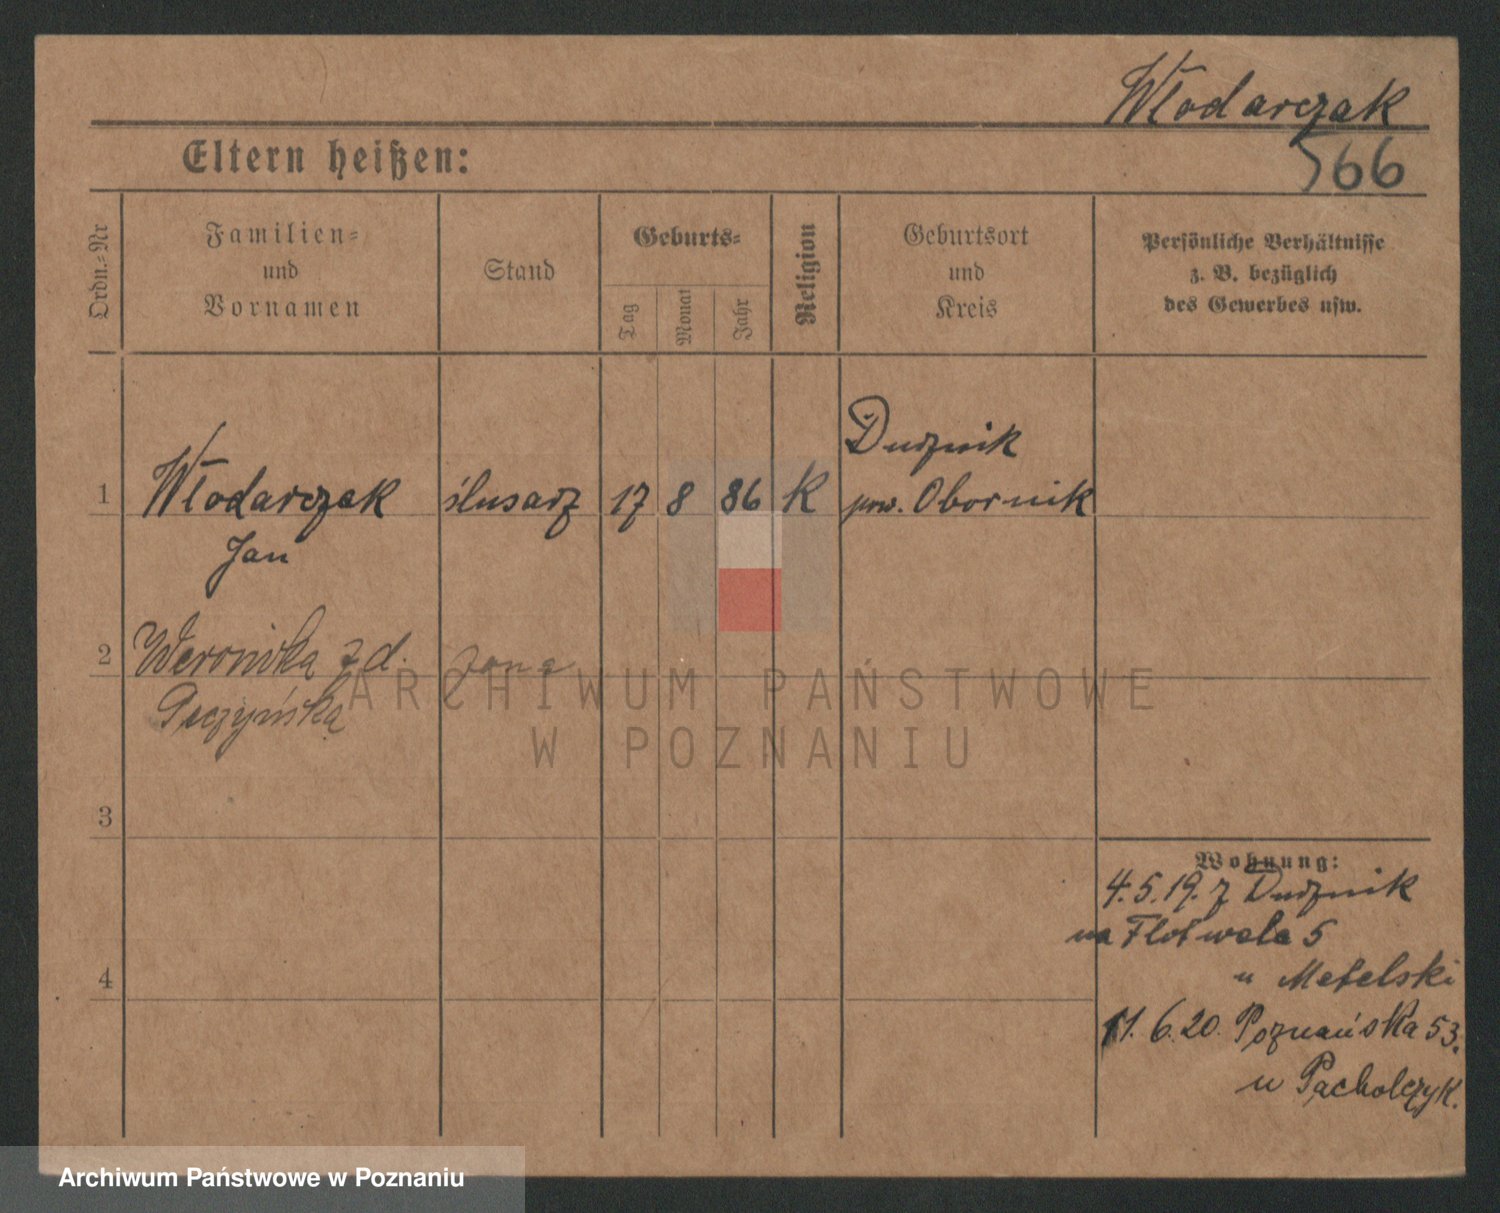 Włodarczak
Eltern heißen:
566
Ordn.-Nr
Familien-
und
Vornamen
Stand
Geburts-
Tag
Monat
Jahr
Religion
Geburtsort
und
Kreis
Persönliche Verhältnisse
z. B. bezüglich
des Gewerbes usw.
1
Włodarczak
Jan
ślusarz
17
8
86
K
pow. Obornik
2
Weronika z d.
żona
3
4
Wohnung:
4.5.19. z
na Flotwela 5
u Metelski
11.6.20. Poznańska 53.
u Pacholczyk.
ARCHIWUM PAŃSTWOWE
W POZNANIU
Archiwum Państwowe w Poznaniu